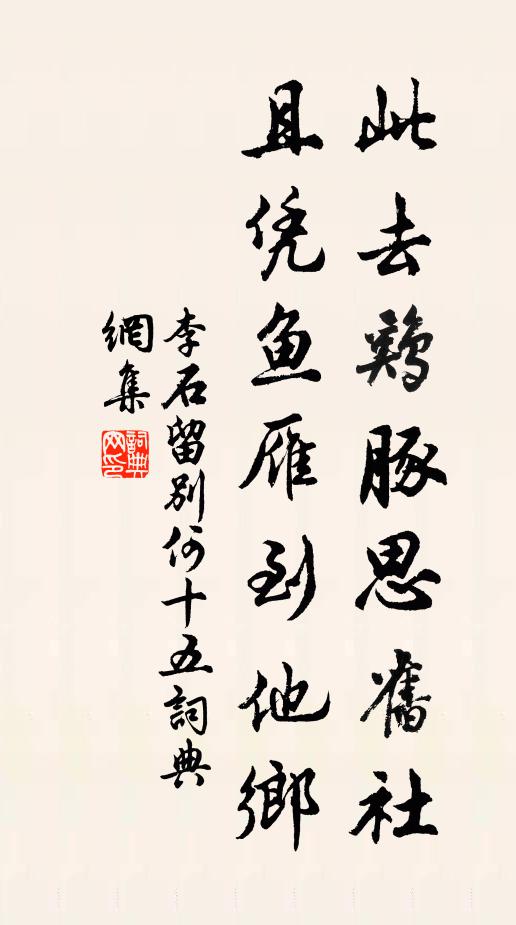 此去鷄豚思舊社
且凭鱼雁到他鄉
李石留别何十五詞典
網集
詞典網印